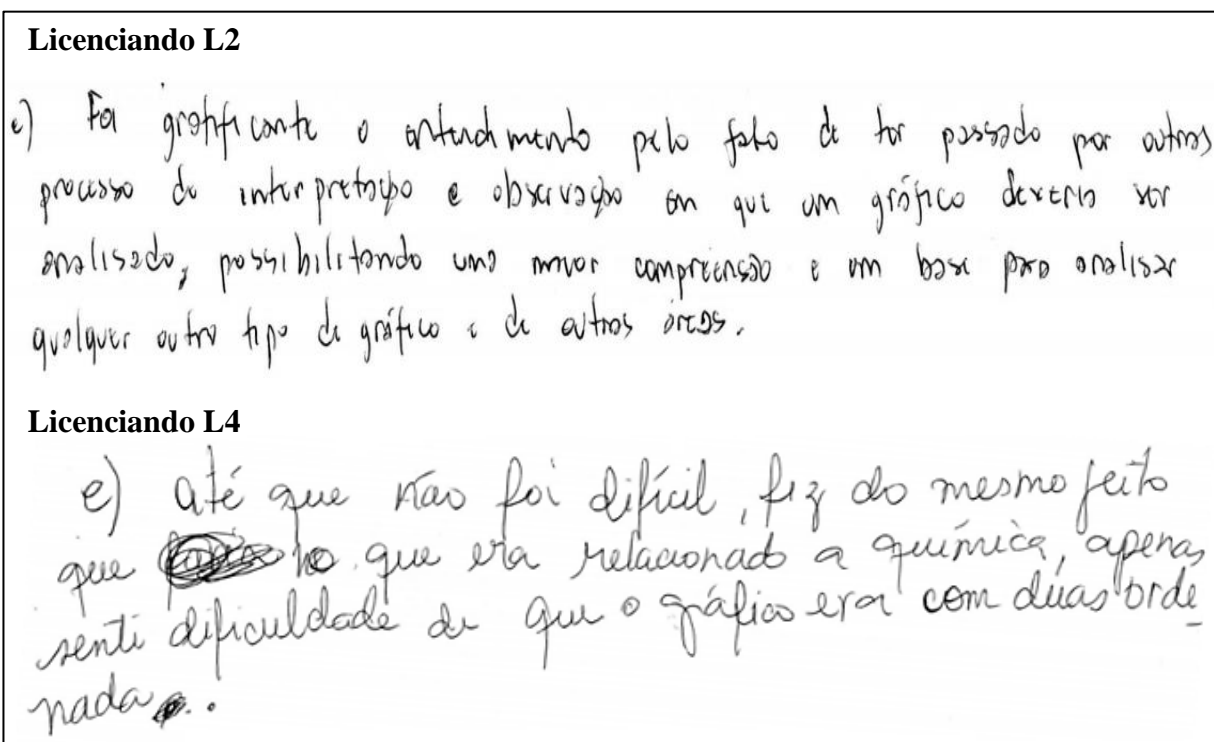 Licenciando L2
e) Foi gratificante o entendimento pelo fato de ter passado por outros
processo de interpretação e observação em que um gráfico deveria ser
analisado, possibilitando uma maior compreensão e um base para analisar
qualquer outro tipo de gráfico e de outros áreas.
Licenciando L4
e) até que não foi difícil, fiz do mesmo jeito
que no que era relacionado a química, apenas
senti dificuldade de que o gráfico era com duas orde
nada.